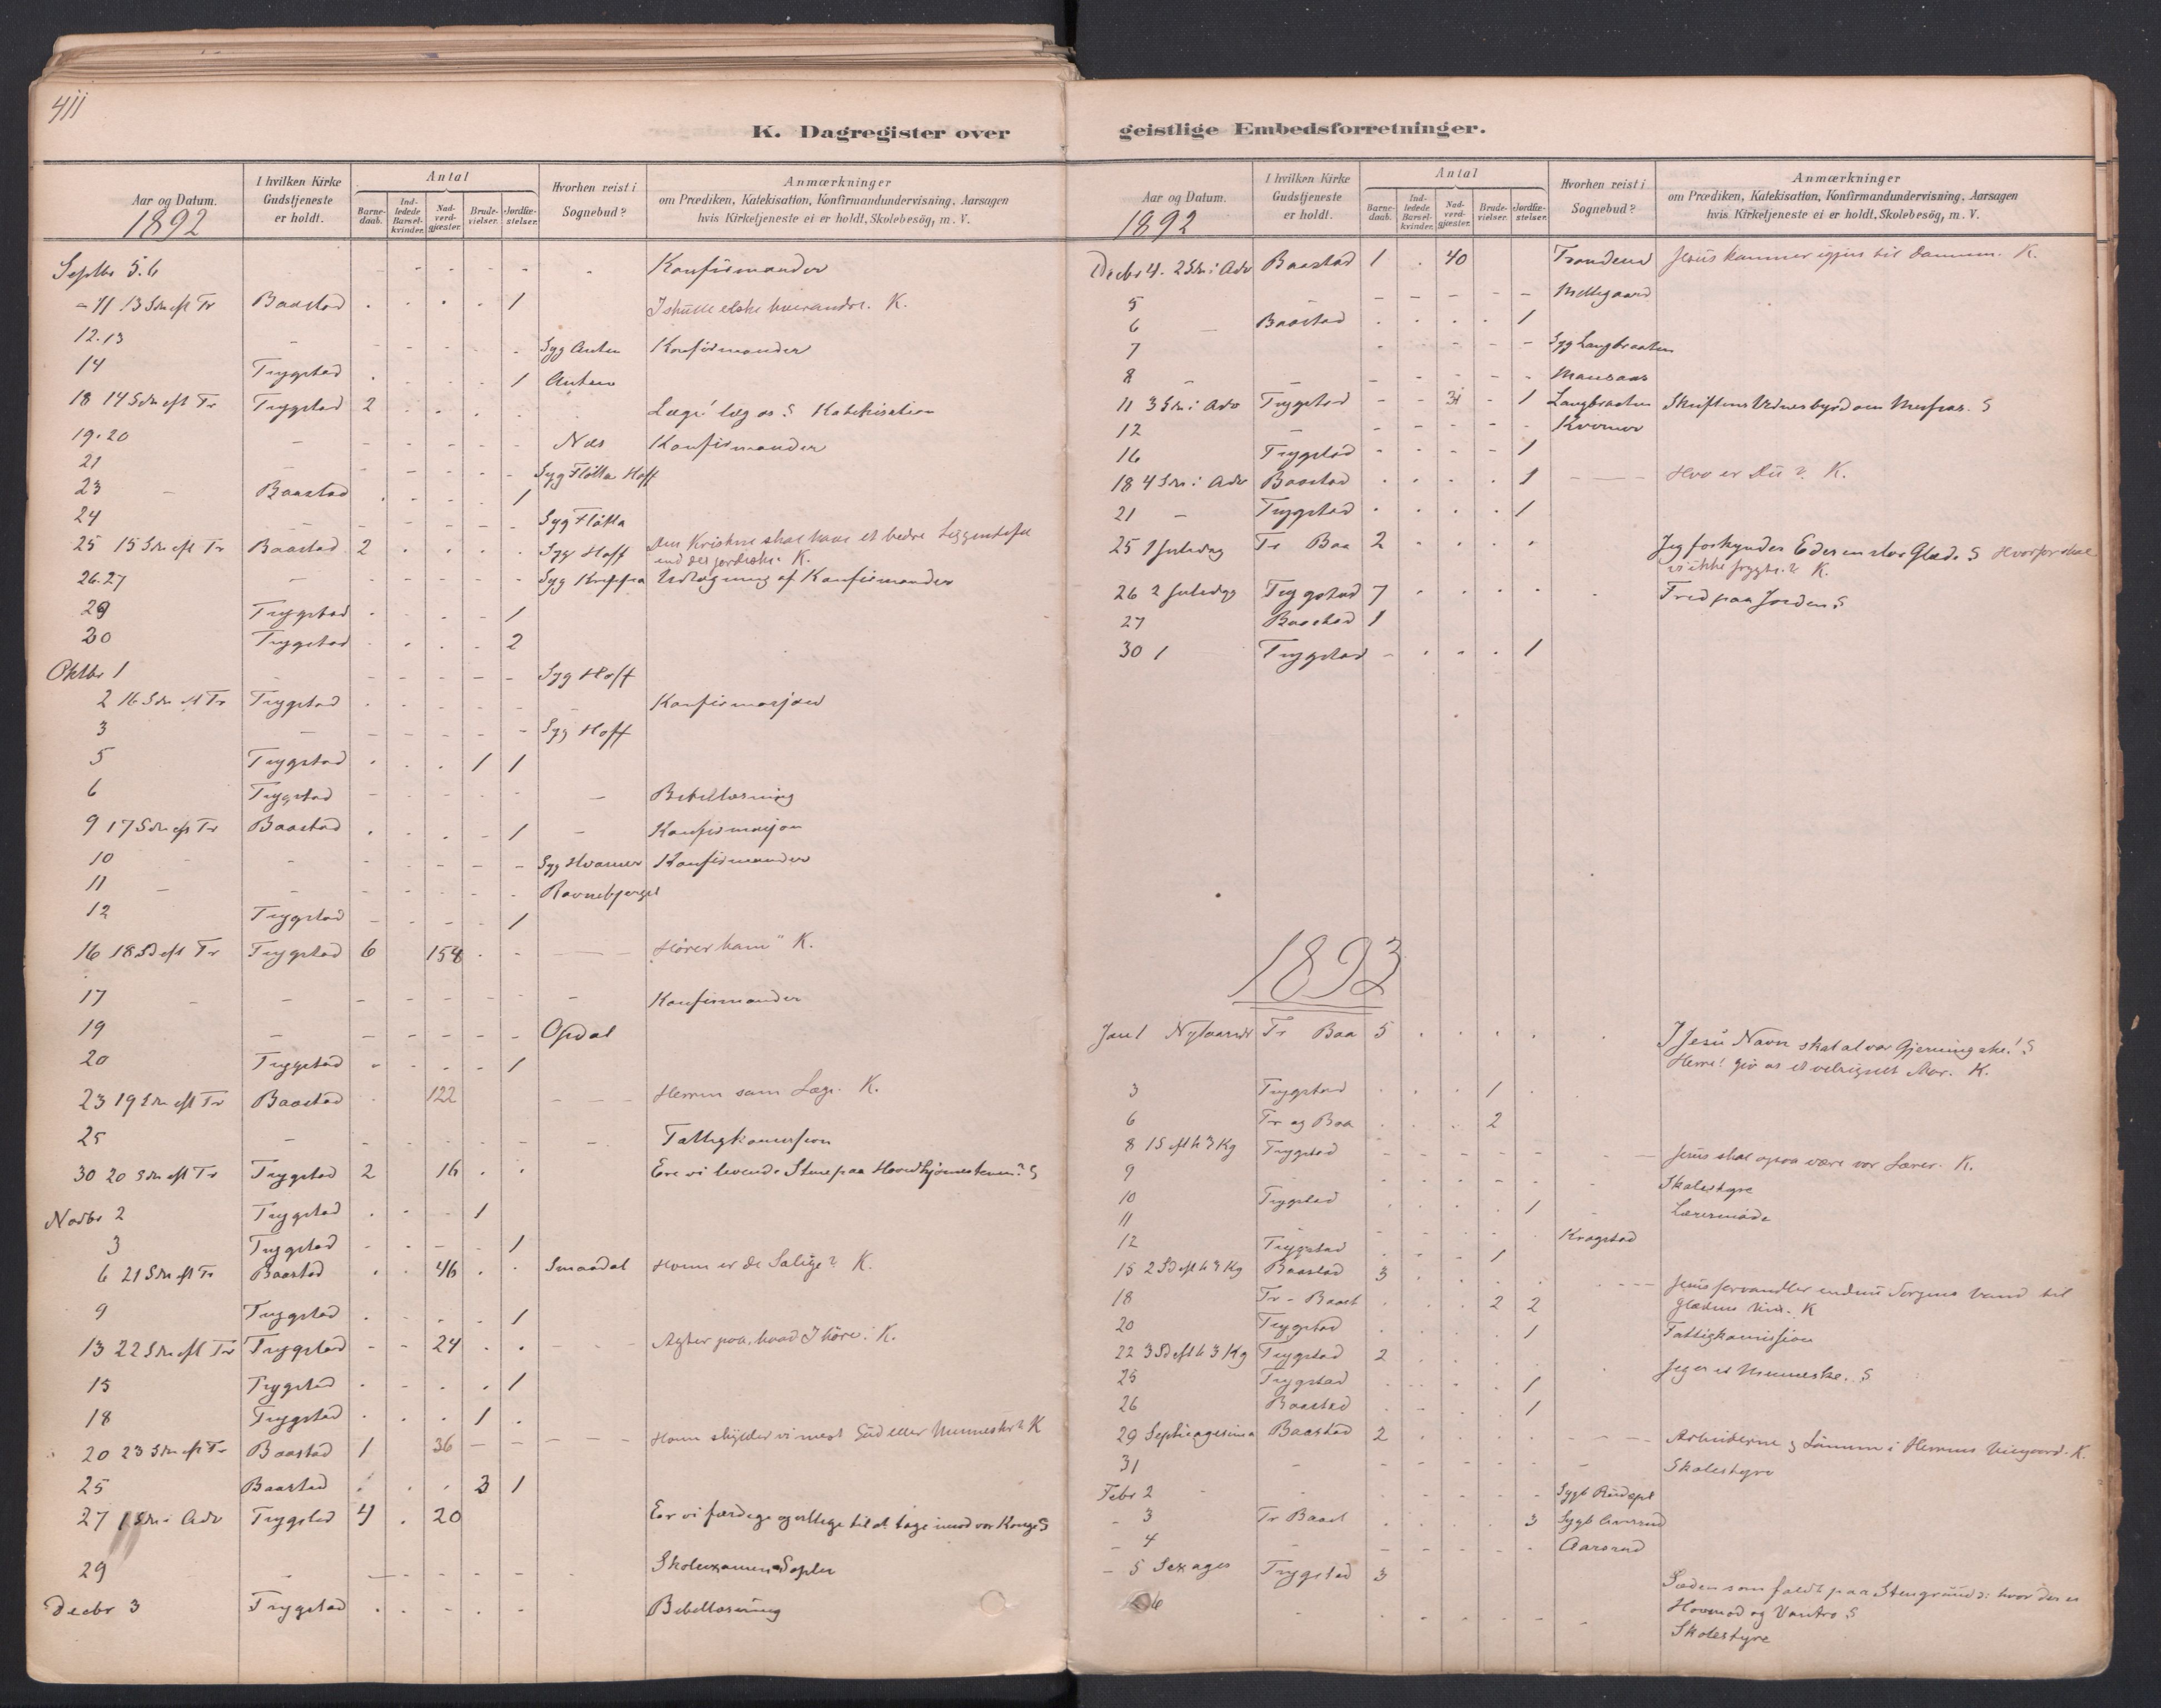 411
K. Dagregister over
Aar og Datum.
1892
I hvilken Kirke Gudstjeneste er holdt.
Antal
Barne-daab.
Ind-ledede Barsel-kvinder.
Nad-verd-gjæster.
Brude-vielser.
Jordfæ-stelser.
Hvorhen reist i Sognebud?
Anmærkninger
om Prædiken, Katekisation, Konfirmandundervisning, Aarsagen
hvis Kirketjeneste ei er holdt, Skolebesög, m. V.
Septbr 5.6 - - - - - - Konfirmander
- 11 13 Sdn eft Tr Baastad . . . . 1 I skulle elske hverandre. K.
12.13 - - - - - - Syg Konfirmander
14 Trygstad . . . . 1
18 14 Sdn eft Tr Trygstad 2 . . . . Læge! læg os S Katekisation
19.20 - - - - - - Næs Konfirmander
21 - - - - - - Syg Fløtta Hoff
23 - Baastad . . . . 1
24 - - - - - - Syg Fløtta
25 15 Sdn eft Tr Baastad 2 . . . . Syg Hoff Den Kristne skal have et bedre
end det jordiske. K.
26.27 - - - - - - Syg af Konfirmander
29 Trygstad . . . . 1
30 Trygstad . . . . 2
Oktbr 1 - - - - - - Syg Hoff
2 16 Sdn eft Tr Trygstad . . . . . Konfirmasjon
3 - - - - - - Syg Hoff
5 Trygstad . . . 1 1
6 Trygstad - - - - - - Bibellæsning
9 17 Sdn eft Tr Baastad . . . . 1 - Konfirmasjon
10 - - - - - - Syg Hvamer Konfirmander
11 - - - - - - - Ravnebjerget
12 Trygstad - - - - 1
16 18 Sd eft Tr Trygstad 6 154 . . - Hører ham" K.
17 - - - - - - - - Konfirmander
19 - - - - - - Opdal
20 Trygstad . . . . 1
23 19 Sdn eft Tr Baastad . 122 - - - Herren som Læge. K.
25 - - - - - - - Fattigkomission
30 20 Sdn eft Tr Trygstad 2 16 . . Ere vi levende Stene paa Hovedhjørnestenen? S
Novbr 2 Trygstad . . . 1
3 Trygstad - - - . 1
6 21 Sdn eft Tr Baastad . . 46 . . Smaadal Hvem er de Salige? K.
9 Trygstad . . . . 1
13 22 Sdn eft Tr Trygstad - - 24 . . - - - Agter paa, hvad I høre. K.
15 Trygstad . . . . 1
18 Trygstad . . . 1 .
20 23 Sdn eft Tr Baastad 1 36 - - - - - Hvem skylder vi mest Gud eller Mennesker? K
25 Baastad . . . 3 1
27 1 Sdn i Adv Trygstad 4 . 20 Er vi færdige og villige til at tage imod vor Konge S
29 - - - - - - . Skoleexamen
Decbr 3 Trygstad . . . . - Bibellæsning
geistlige Embedsforretninger.
Aar og Datum.
1892
I hvilken Kirke Gudstjeneste er holdt.
Antal
Barne-daab.
Ind-ledede Barsel-kvinder.
Nad-verd-gjæster.
Brude-vielser.
Jordfæ-stelser.
Hvorhen reist i Sognebud?
Anmærkninger
om Prædiken, Katekisation, Konfirmandundervisning, Aarsagen
hvis Kirketjeneste ei er holdt, Skolebesög, m. V.
Decbr 4. 2 Sdn i Adv Baastad 1 . 40 Jesus kommer igjen til Dommen. K.
5 - - - - - -
6 - Baastad . . . . 1
7 - - - - - Syg Langbraaten
8 - - - - - - -
11 3 Sdn i Adv Trygstad - - 31 - 1 Langbraaten Skriftens Vidnesbyrd om Messias. S
12 - - - - - -
16 Trygstad - - - - 1
18 4 Sdn i Adv Baastad . . . . 1 - - - Hvo er Du? K.
21 - Trygstad . . . . 1
25 1 Juledag Tr Baa 2 . . . . Jeg forkynder Eder en stor Glæde S Hvorfor skal
vi ikke frygte? K.
26 2 Juledag Trygstad 7 . . . . . Fred paa Jorden S
27 Baastad 1
30 1 Trygstad - . . . 1
1893
Jan 1 Nytaarsdg Tr Baa 5 . . . . I Jesu Navn skal al vor Gjerning ske! S
Herre! giv os et velsignet Aar. K.
3 Trygstad . . . 1 .
6 Tr og Baa . . . 2
8 1 S eft h 3 Kg Trygstad - - - - - - - Jesus skal ogsaa være vor Lærer. K.
9 - - - - - - Skolestyre
10 Trygstad . . . . 1 - Lærermøde
11 - - - - - - Kragstad
12 Trygstad . . . 1
15 2 Sd eft h 3 Kg Baastad 3 . . . . - - - Jesus forvandler endnu Sorgens Vand til
Glædens Vin. K
18 Tr - Baast . . . 2 2
20 Trygstad . . . . 1 Fattigkomission
22 3 Sd eft h 3 Kg Trygstad 2 . . . . . Jeg er et Menneske. S
25 Trygstad . . . . 1
26 Baastad . - . . 1
29 Septuagesima Baastad 2 . . . . - - - Arbeiderne og Lønnen i Herrens Viingaard. K.
31 - - - - - - - Skolestyre
Febr 2 - - - - - - -
- 3 Tr Baast . . . . 3
- 4 - - - - - - Aarsrud
- 5 Sexages Trygstad 3 Sæden som faldt paa Stengrund ɔ: hvor der er
Hovmod og Vantro S
6 - - - - - - - Skolestyre